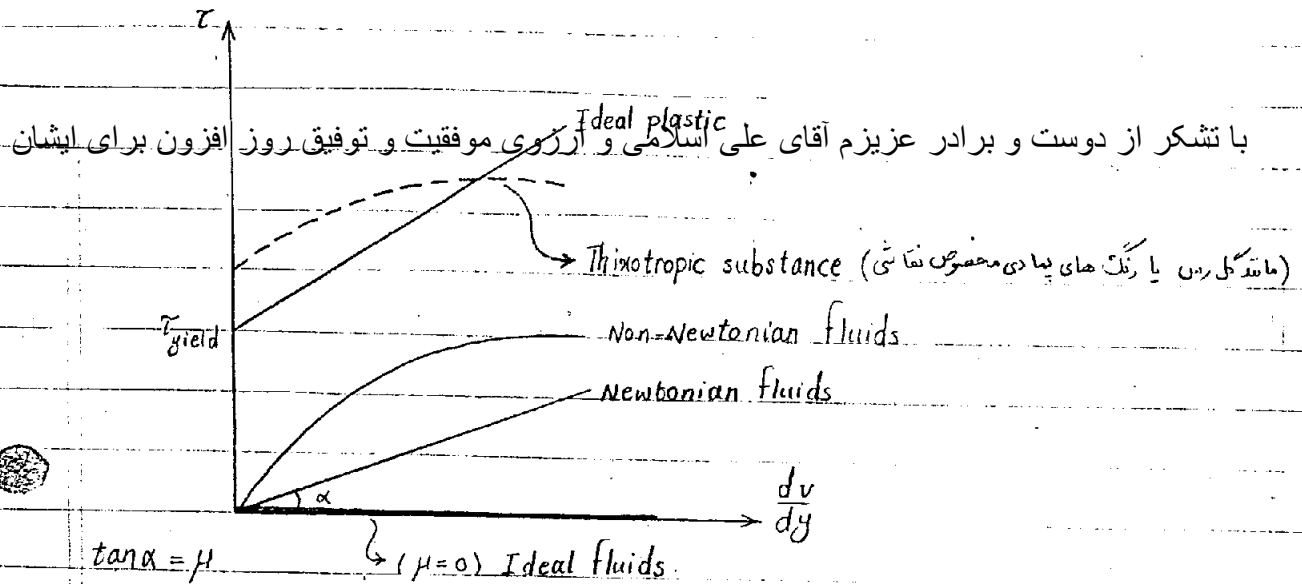 τ
Ideal plastic
با تشکر از دوست و برادر عزیزم آقای علی اسلامی و آرزوی موفقیت و توفیق روز افزون برای ایشان
Thixotropic substance (مانند گل رس یا رنگ های مخصوص نقاشی)
τyield
Non-Newtonian fluids
Newtonian fluids
α
dv/dy
tanα = μ
(μ=0) Ideal fluids.